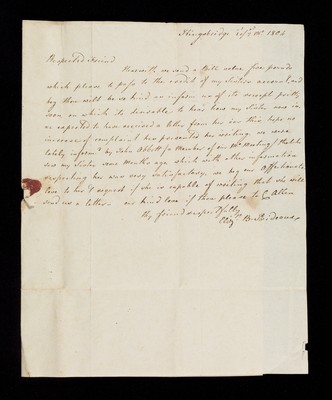 Kingsbridge 1804
Respected Friend
Herewith we send a Bill value five pounds
which please to pass to the credit of my Sisters account, and
beg thou will be so kind as inform us of its receipt pretty
soon on which its desirable to hear how my Sister now is
we expected to have received a letter from her ere this, hope no
increase of complaint has prevented her writing, we were
lately inform'd by John Abbott (a Member of our Mo Meeting) that he
saw my Sister some Months ago which with other information
respecting her was very satisfactory, we beg our Affectionate
love to her & request if she is capable of writing that she will
send us a letter. our kind love if thou please to Allen
thy friend respectfully